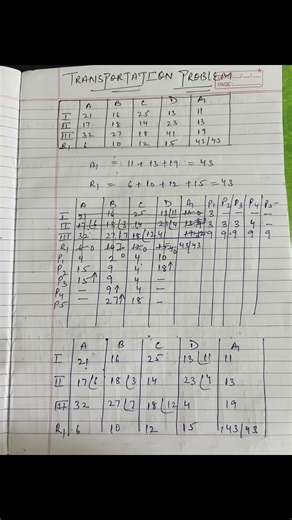 TRANSPORTATION PROBLEM
PAGE
A B C D A1
I 21 16 25 13 11
II 17 18 14 23 13
III 32 27 18 41 19
R1 6 10 12 15 43/43
A1 = 11 + 13 + 19 = 43
R1 = 6 + 10 + 12 + 15 = 43
A B C D A1 P1 P2 P3 P4 P5
I 21 16 25 13/11 11 0 3 - - - -
II 17/6 18/3 14 23/4 3 3 3 4 -
III 32 27/7 18/12 9 9 9 9 9
R1 6 0 43/43
P1 4 2 4 10
P2 15 9 4 18↑
P3 15↑ 9 4 -
P4 - 9↑ 4 -
P5 - 27↑ 18 -
A B C D A1
I 21 16 25 13/11 11
II 17/6 18/3 14 23/4 13
III 32 27/7 18/12 4 19
R1 6 10 12 15 43/43